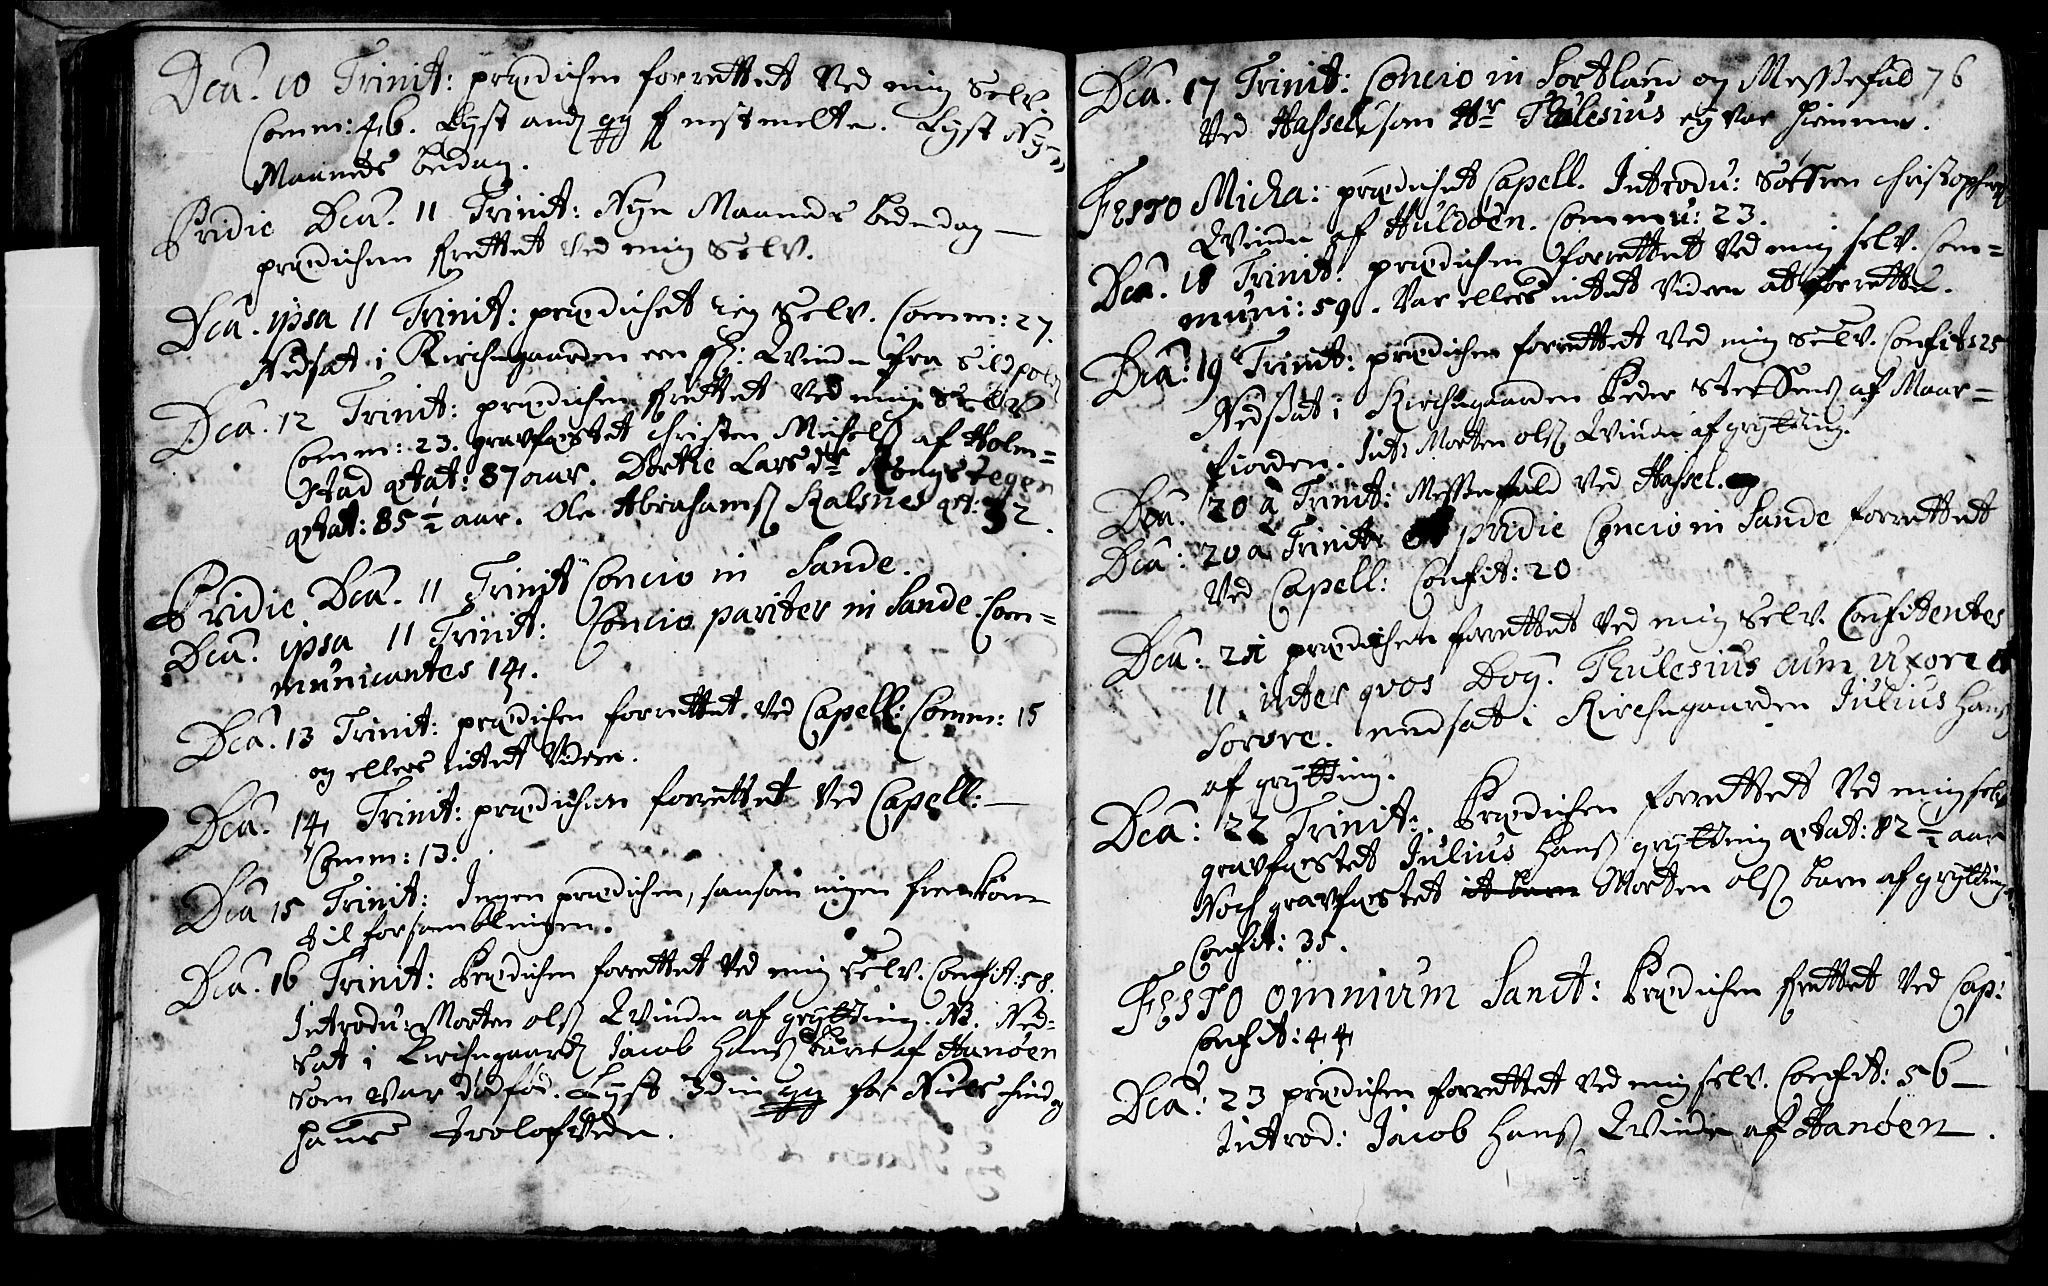 Dca. 10 Trinit: prædichen forrettet Ved mig Selv.
Comm: 46. Lyst and gg f nestmelte. Lyst Nye
Maaneds bededag.
Pridie Dca. 11 Trinit: Nye Maaneds bededag —
prædichen frettet Ved mig Selv.
Dca. ipsa 11 Trinit: prædichet ieg Selv. Comm: 27.
Nedsat i Kirchegaarden een Qvinde fra Sildpold
Dca. 12 Trinit: prædichen frettet Ved mig Selv
Comm: 23. gravfæstet Christen Michels af Holm=
stad ætat: 87 aar. Dorthe Lars dr Kongstegen
ætat: 85 ½ aar. Ole Abrahams Kalsnes æt: 32.
Pridie Dca. 11 Trinit Concio in Sande.
Dca. ipsa 11 Trinit: Concio pariter in Sande Com=
municantes 14.
Dca. 13 Trinit: prædichen forrettet Ved Capell: Comm: 15
og ellers intet Videre.
Dca. 14 Trinit: prædichen forrettet Ved Capell: —
Comm: 13.
Dca 15 Trinit: Ingen prædichen, saasom ingen fremkom
til forsamblingen.
Dca. 16 Trinit: Prædichen forrettet Ved mig Selv. Confit: 58.
Introdu: Morten ols Qvinde af grytting. NB. Ned=
sat i Kirchegaard Jacob Hans barn af Hanøen
som Var dødfød. Lyst 3die gg for Niels
hans trolofvede.
Dca. 17 Trinit: Concio in Sortland og Messefald 76
Ved Hassel, som Hr Thulesius ey var hiemme.
Festo Micha: prædichet Capell. Introdu: Søffren Christophers
Qvinde af Huldøen. Commu: 23.
Dca. 18 Trinit: prædichen forrettet Ved mig selv. Com=
muni: 59. Var ellers intet Videre at forrette.
Dca: 19 Trinit: prædichen forrettet Ved mig Selv. Confit: 25
Nedsat i Kirchegaarden Peder Steffens af Maar=
fiorden. Int: Morten ols Qvinde af grytting.
Dca. 20 a Trinit: Messefald Ved Hassel.
Dca: 20 a Trinit: pridie Concio in Sande forrettet
Ved Capell: Confit: 20
Dca: 21 prædichen forrettet Ved mig Selv. Confitentes
11. inter qvos Dom. Thulesius cum uxore et
Sorore. nedsat i Kirchegaarden Julius Hans
af grytting.
Dca: 22 Trinit: Prædichen forrettet Ved mig selv
gravfæstet Julius Hans grytting ætat: 82 ½ aar
Noch gravfæstet it barn Morten ols barn af grytting
Confit: 35.
Festo omnium Sanct: Prædichen frettet Ved Cap:
Confit: 44
Dca: 23 prædichen forrettet Ved mig selv. Confit: 56 —
Introd: Jacob Hans Qvinde af Hanøen.